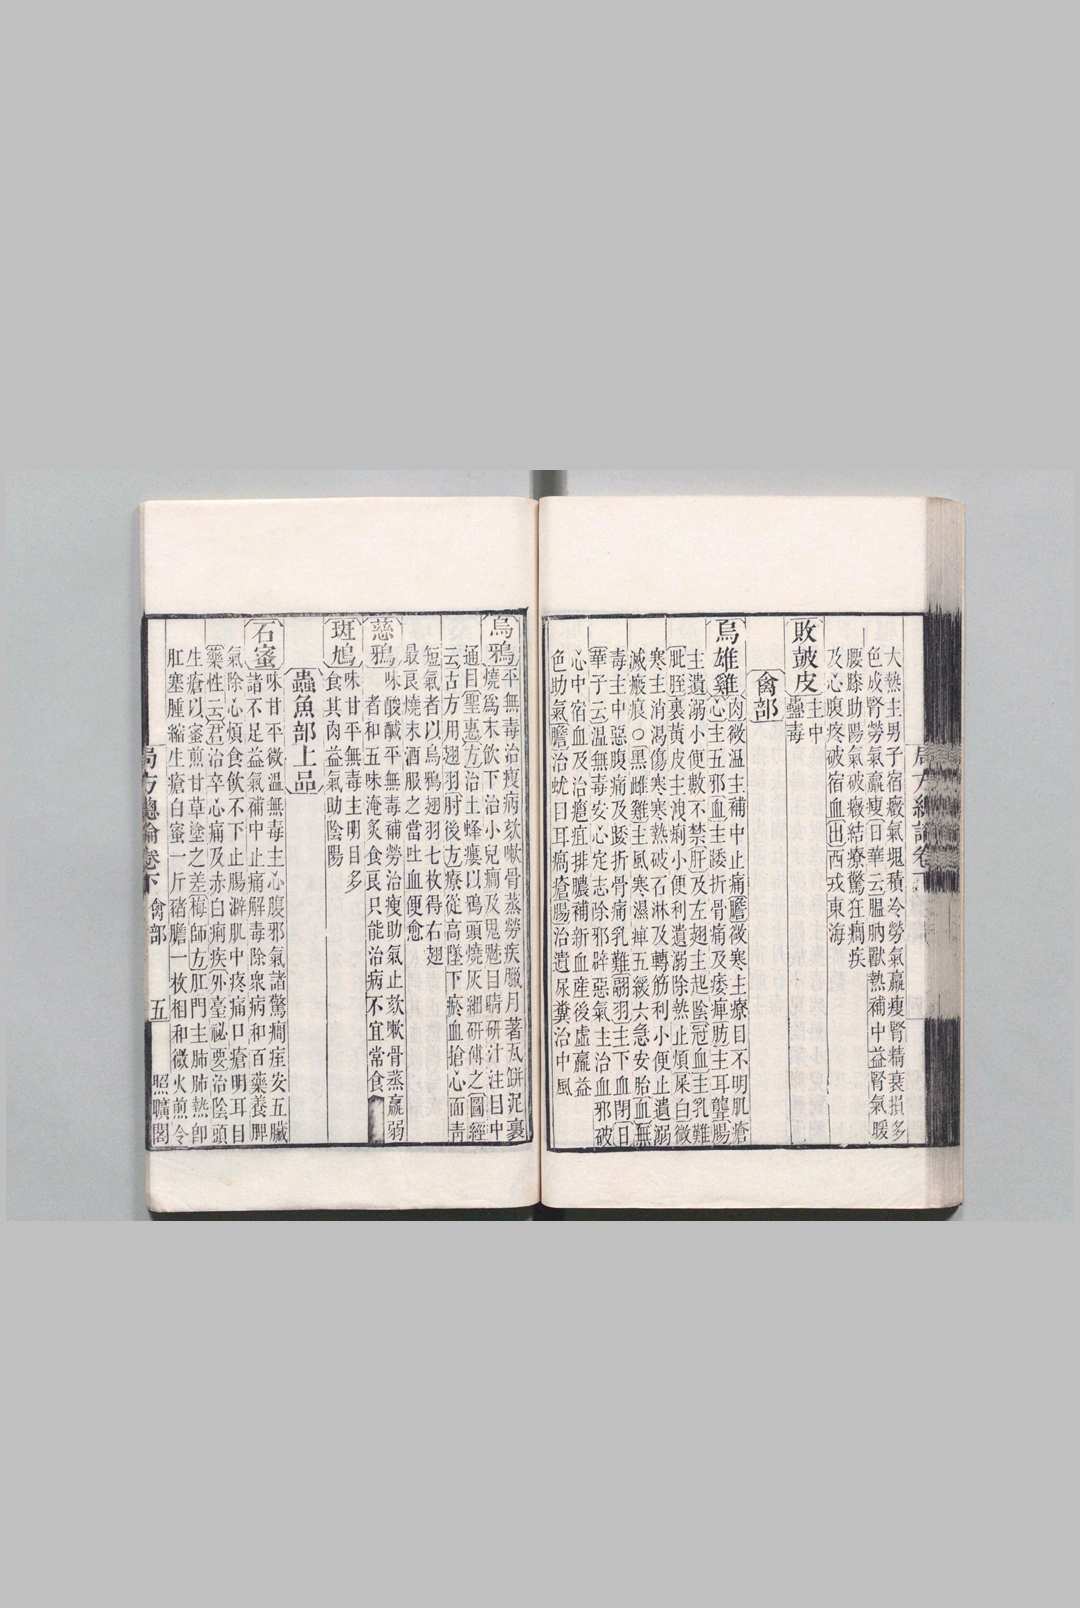 大熱主男子宿癥氣塊積冷勞氣羸瘦腎精衰損多
色成腎勞氣羸瘦日華云膃肭獸熱補中益腎氣暖
腰膝助陽氣破癥結療驚狂癇疾
及心腹疼破宿血出西戎東海
敗鼓皮主中
蠱毒
禽部
烏雄雞肉微溫主補中止痛膽微寒主療目不明肌瘡
心主五邪血主踒折骨痛及痿痺肪主耳聾腸
主遺溺小便數不禁肝及左翅主起陰冠血主乳難
肶胵裏黃皮主洩痢小便利遺溺除熱止煩屎白微
寒主消渴傷寒寒熱破石淋及轉筋利小便止遺溺
滅瘢痕○黑雌雞主風寒濕痺五緩六急安胎血無
毒主中惡腹痛及踒折骨痛乳難翮羽主下血閉日
華子云溫無毒安心定志除邪辟惡氣主治血邪破
心中宿血及治癰疽排膿補新血產後虛羸益
色助氣膽治虬目耳瘑瘡腸治遺尿糞治中風
烏鴉平無毒治瘦病欬嗽骨蒸勞疾臘月著瓦餅泥裹
燒爲末飲下治小兒癇及鬼魅目睛研汁注目中
通目聖惠方治土蜂瘻以鴉頭燒灰細研傅之圖經
云古方用翅羽肘後方療從高墜下瘀血搶心面青
短氣者以烏鴉翅羽七枚得右翅
最良燒末酒服之當吐血便愈
慈鴉味酸鹹平無毒補勞治瘦助氣止欬嗽骨蒸羸弱
者和五味淹炙食良只能治病不宜常食
斑鳩味甘平無毒主明目多
食其肉益氣助陰陽
蟲魚部上品
石蜜味甘平微溫無毒主心腹邪氣諸驚癇痓安五臟
諸不足益氣補中止痛解毒除衆病和百藥養脾
氣除心煩食飲不下止腸澼肌中疼痛口瘡明耳目
藥性云君治卒心痛及赤白痢疾外臺祕要治陰頭
生瘡以蜜煎甘草塗之差梅師方肛門主肺肺熱卽
肛塞腫縮生瘡白蜜一斤豬膽一枚相和微火煎令
局方總論卷下 禽部 五 照曠閣